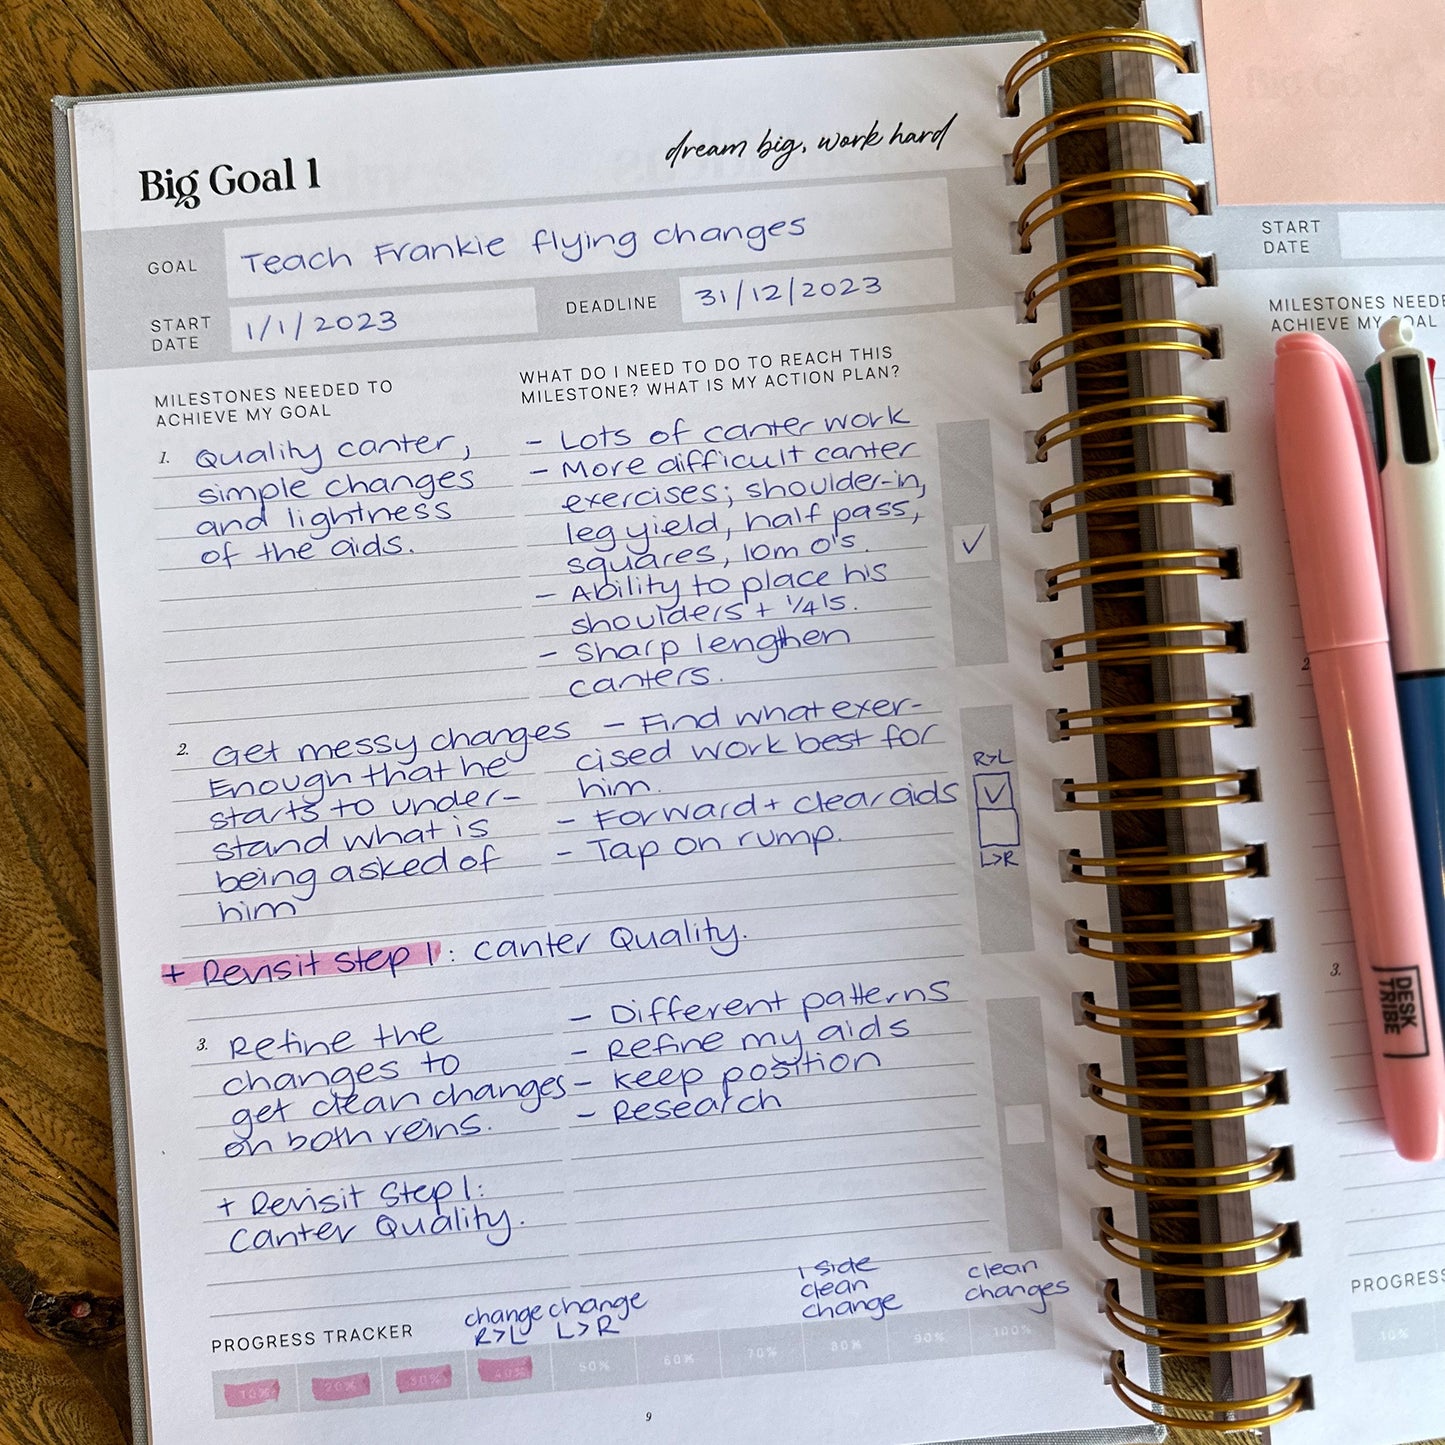 Big Goal 1
dream big, work hard
GOAL
Teach Frankie flying changes
START
DATE
1/1/2023
DEADLINE
31/12/2023
MILESTONES NEEDED TO
ACHIEVE MY GOAL
WHAT DO I NEED TO DO TO REACH THIS
MILESTONE? WHAT IS MY ACTION PLAN?
1.
Quality canter,
simple changes
and lightness
of the aids.
- Lots of canter work
- More difficult canter
exercises; shoulder-in,
leg yield, half pass,
squares, 10m O's.
- Ability to place his
shoulders + 1/4's.
- Sharp lengthen
canters.
✓
2.
Get messy changes
Enough that he
starts to under-
stand what is
being asked of
him
- Find what exer-
cised work best for
him.
- Forward + clear aids
- Tap on rump.
R>L
✓
L>R
+ Revisit Step 1: Canter Quality.
3.
Refine the
changes to
get clean changes
on both reins.
- Different patterns
- Refine my aids
- Keep position
- Research
+ Revisit Step 1:
Canter Quality.
PROGRESS TRACKER
change
R>L
change
L>R
1 side
clean
change
clean
changes
10%
20%
30%
40%
50%
60%
70%
80%
90%
100%
9
START
DATE
MILESTONES NEEDE
ACHIEVE MY GOAL
2
3.
DESK
TRIBE
PROGRESS
10%